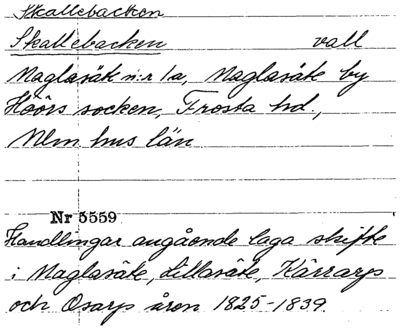 Skallebacken
Skallebacken vall
Maglasäte n:r 1a, Maglasäte by
Höörs socken, Frosta hd.,
Mlm hus län
Nr 5559
Handlingar angående laga skifte
i Maglasäte, Lillasäte, Kärrarp
och Osarp åren 1825-1839.